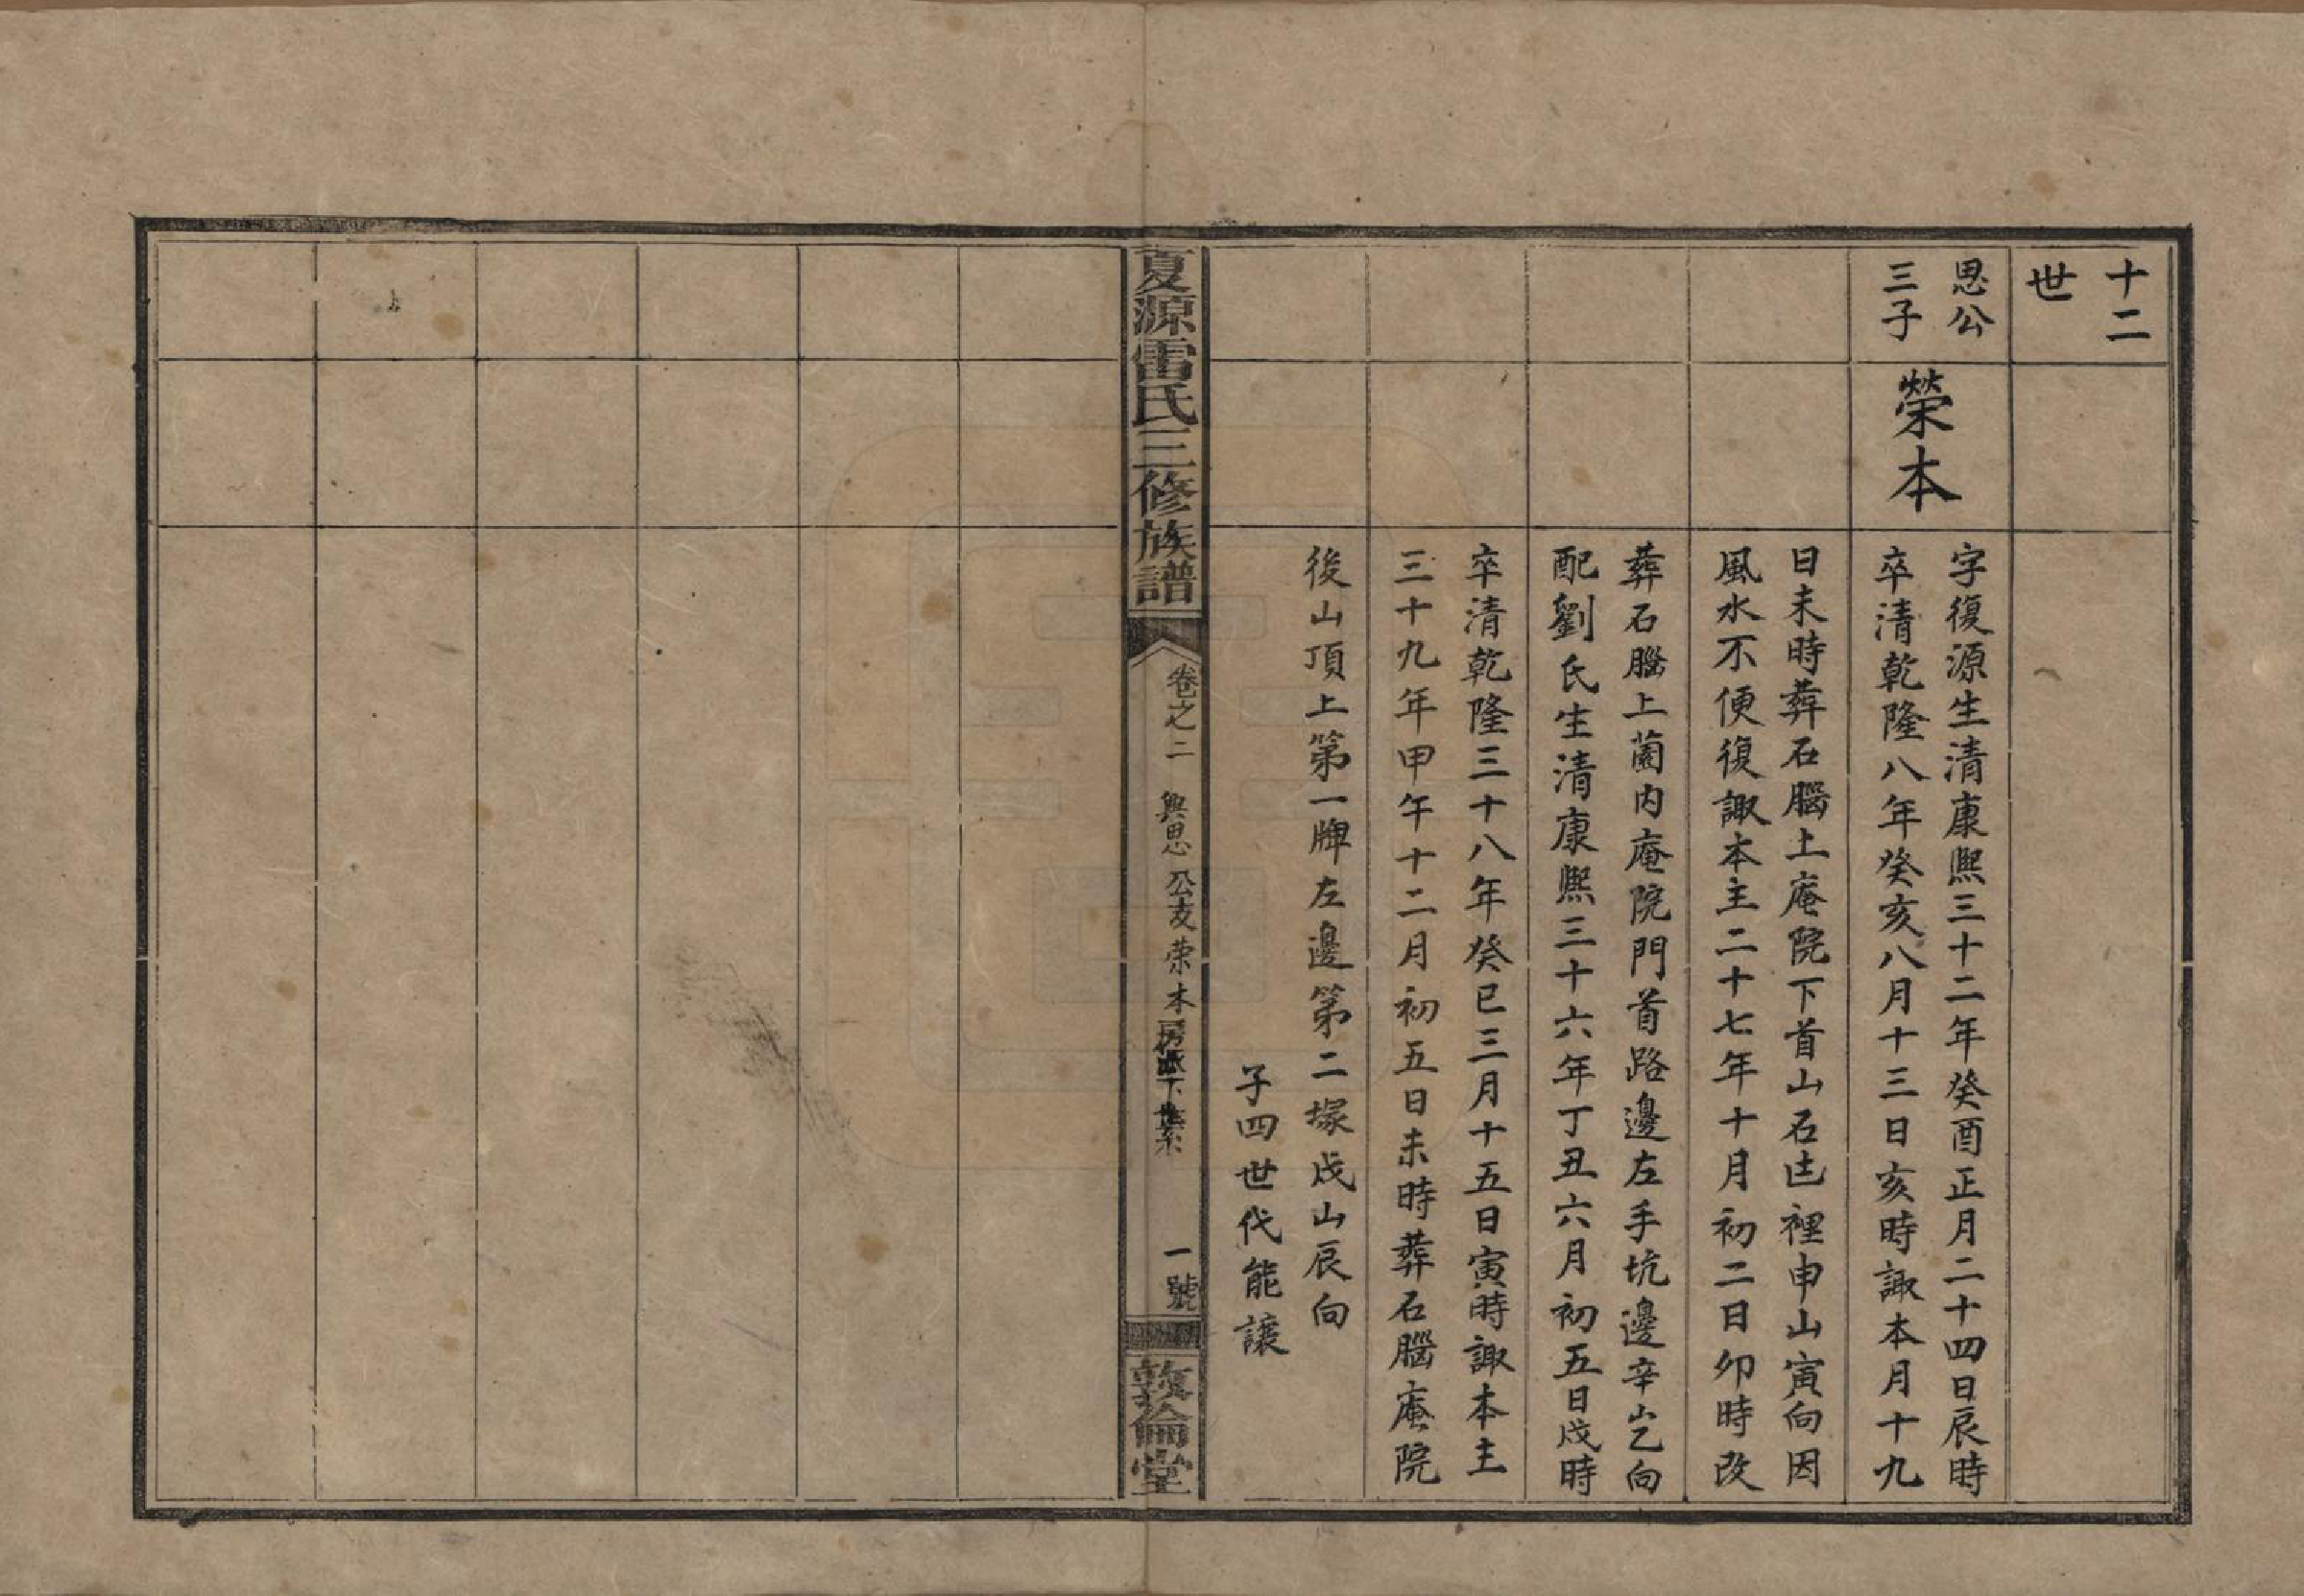 十二
世
思公
三子
榮本
字復源生清康熙三十二年癸酉正月二十四日辰時
卒清乾隆八年癸亥八月十三日亥時諏本月十九
日未時葬石腦土庵院下首山石𡉏裡申山寅向因
風水不便復諏本主二十七年十月初二日卯時改
葬石腦上薗内庵院門首路邊左手坑邊辛山乙向
配劉氏生清康熙三十六年丁丑六月初五日戌時
卒清乾隆三十八年癸巳三月十五日寅時諏本主
三十九年甲午十二月初五日未時葬石腦庵院
後山頂上第一牌左邊第二塚戌山辰向
子四世代能讓
夏源雷氏三修族譜
卷之二 興思公支荣本房派下世系
一號
敦倫堂